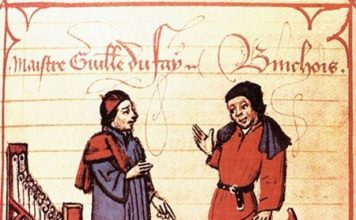 Maistre Guille du fay Binchois.